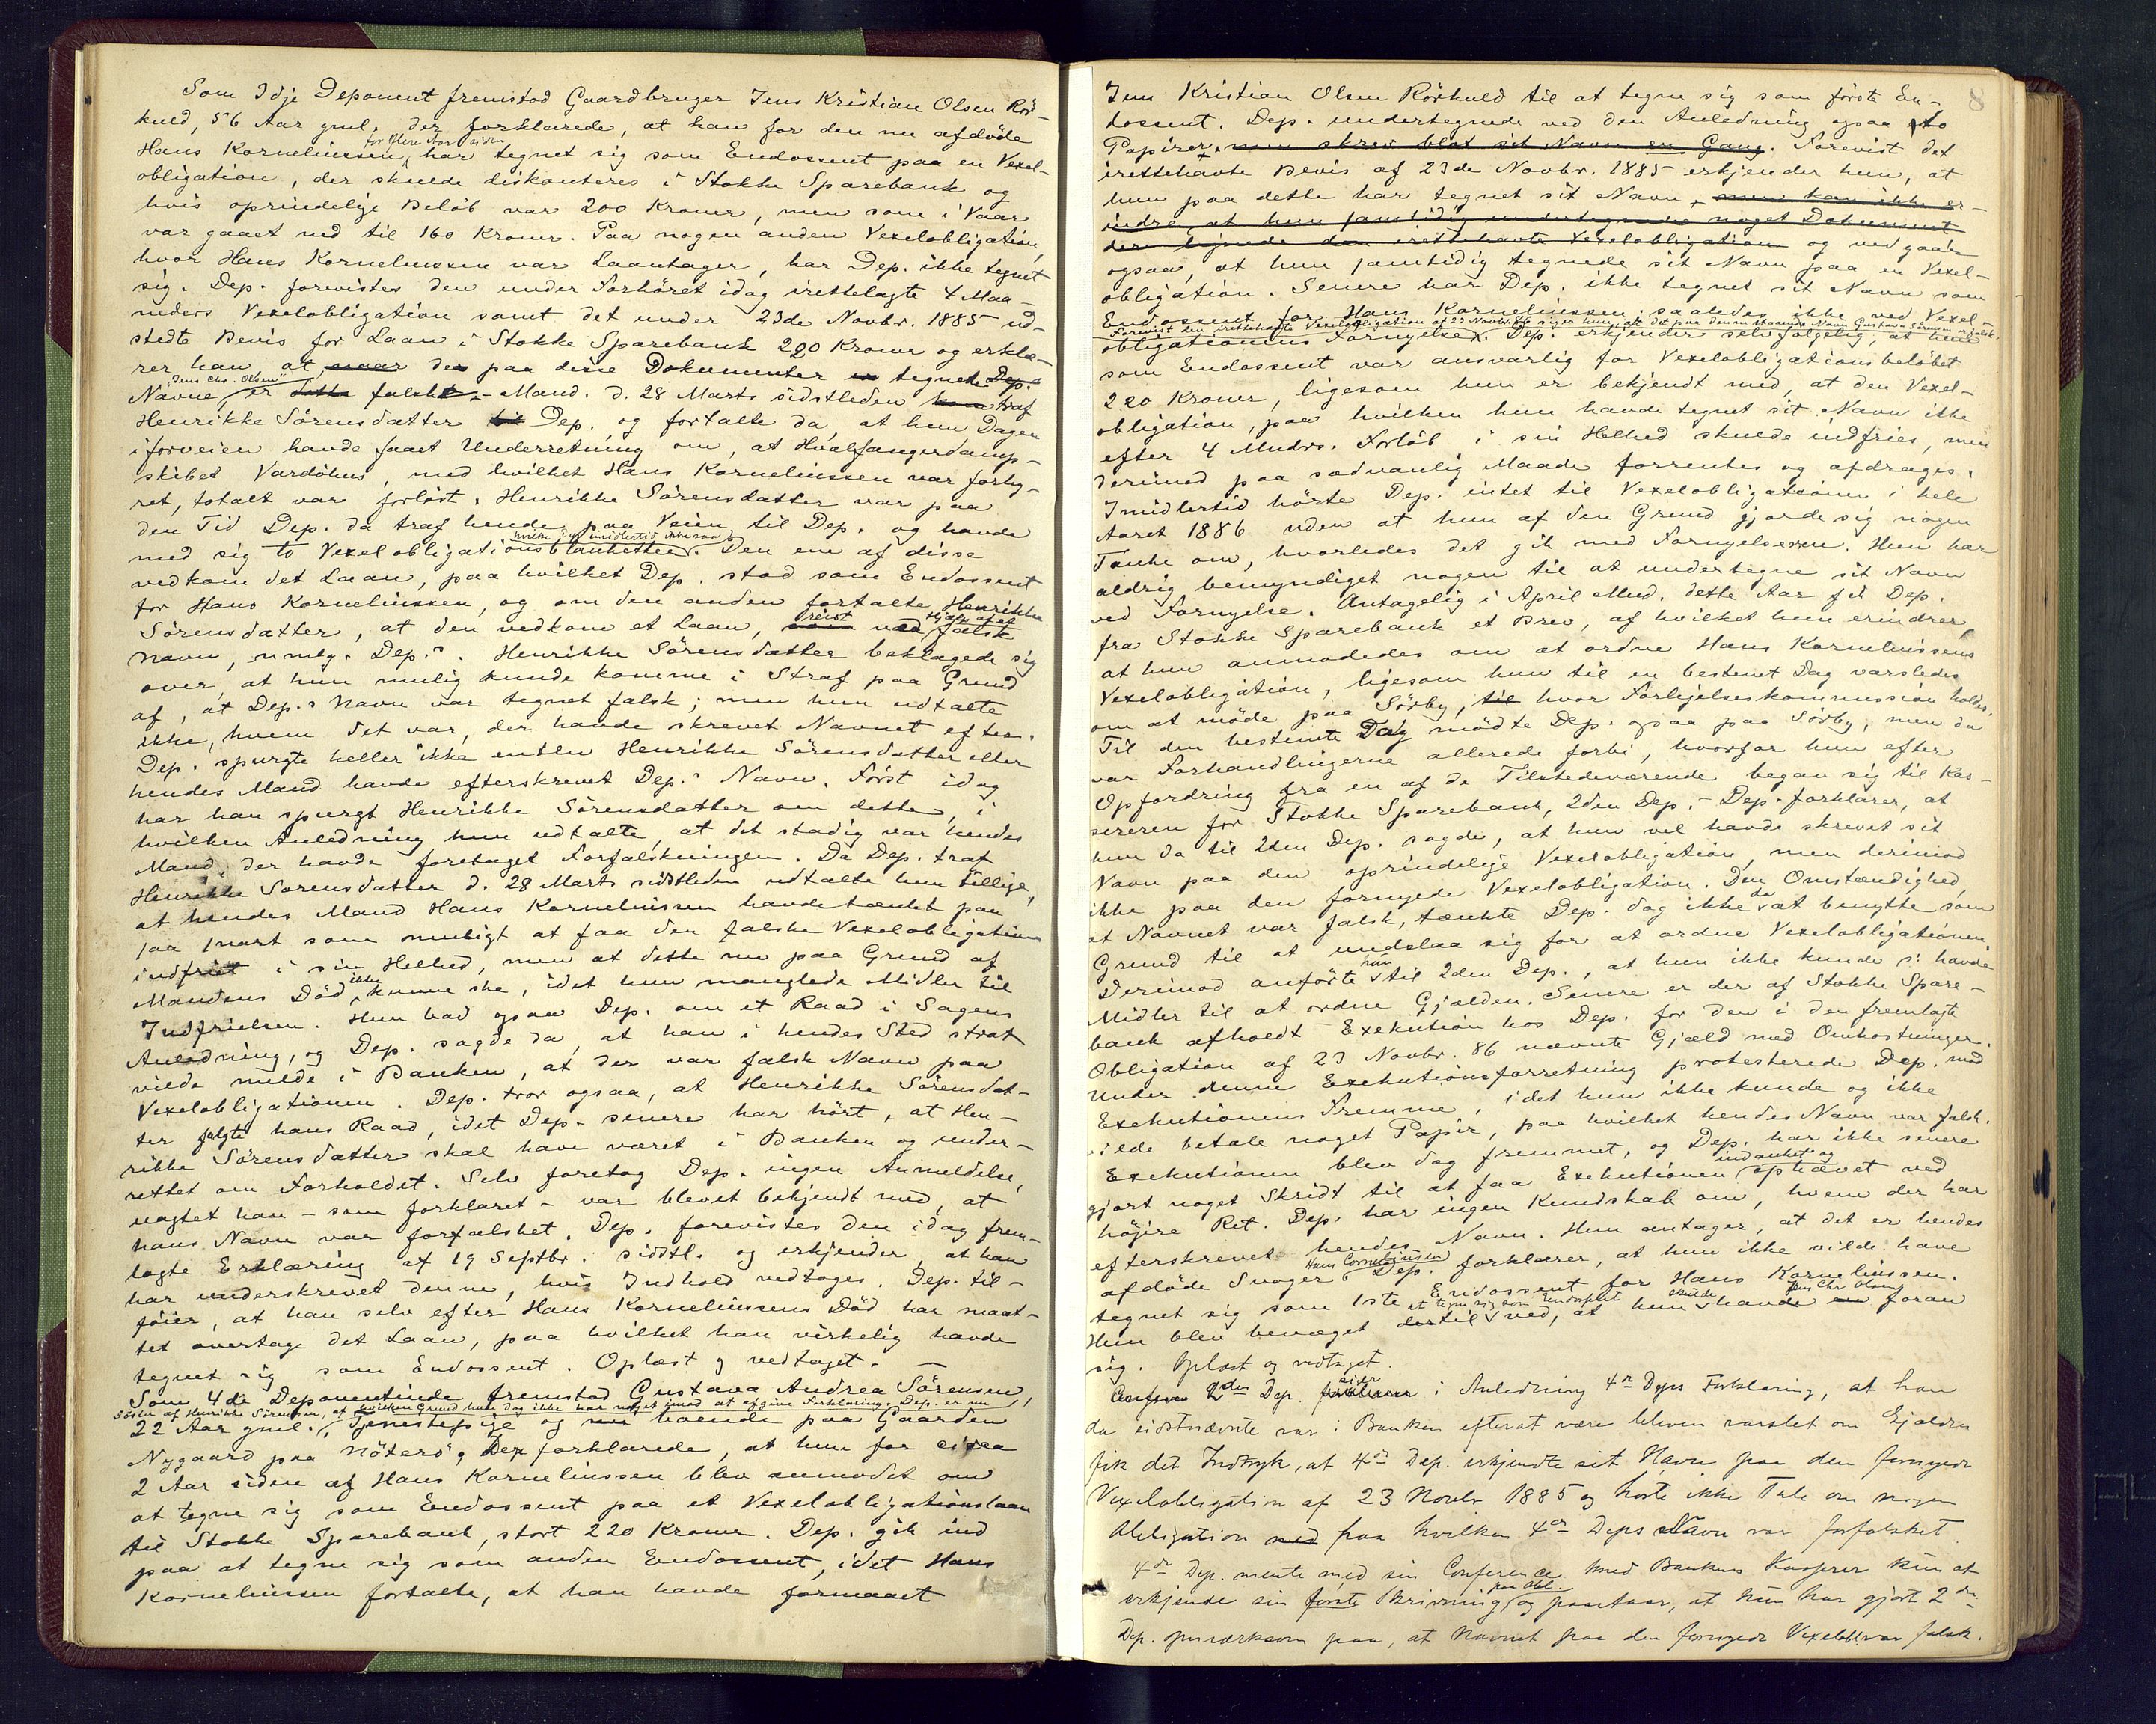 Som 3dje Deponent fremstod Gaardbruger Jens Kristian Olsen Rör-
kuld, 56 Aar gml., der forklarede, at han for den nu afdöde
for flere Aar siden
Hans Korneliussen, har tegnet sig som Endossent paa en Vexel-
obligation, der skulde diskonteres i Stokke Sparebank og
hvis oprindelige Belöb var 200 Kroner, men som i Vaar
var gaaet ned til 160 Kroner. Paa nogen anden Vexelobligation,
hvor Hans Korneliussen var Laantager, har Dep. ikke tegnet
sig. Dep. forevistes den under Forhöret idag irettelagte 4 Maa-
neders Vexelobligation samt det under 23de Novbr. 1885 ud-
stedte Bevis for Laan i Stokke Sparebank 220 Kroner og erklæ-
rer han, at naar det paa disse Dokumenter er tegnede Dep.
"Jens Chr. Olsen"
Navne er dette falskt. - Mand. d. 28 Marts sidstleden kom traf
Henrikke Sörensdatter til Dep. og fortalte da, at hun Dagen
iforveien havde faaet Underretning om, at Hvalfangerdamp-
skibet Vardöhus, med hvilket Hans Korneliussen var forhy-
ret, totalt var forlöst. Henrikke Sörensdatter var paa
den Tid Dep. da traf hende, paa Veien til Dep. og havde
hvilke Dep. imidlertid ikke saa
med sig to Vexelobligationsblanketter. Den ene af disse
vedkom det Laan, paa hvilket Dep. stod som Endossent
for Hans Korneliussen, og om den anden fortalte Henrikke
reist Hjælp af et
Sörensdatter, at den vedkom et Laan, som ved falsk
Navn, nmlg. Dep.s. Henrikke Sörensdatter beklagede sig
over, at hun mulig kunde komme i Straf paa Grund
af, at Dep.s Navn var tegnet falsk; men hun udtalte
ikke, hvem det var, der havde skrevet Navnet efter.
Dep. spurgte heller ikke enten Henrikke Sörensdatter eller
hendes Mand havde efterskrevet Dep.s Navn. Först idag
har han spurgt Henrikke Sörensdatter om dette, i
hvilken Anledning hun udtalte, at det stadig var hendes
Mand, der havde foretaget Forfalskningen. Da Dep. traf
Henrikke Sörensdatter d. 28 Marts sidstleden udtalte hun tillige,
at hendes Mand Hans Korneliussen havde tænkt paa
saa snart som muligt at faa den falske Vexelobligation
indfriet i sin Helhed, men at dette nu paa Grund af
ikke
Mandens Död kunne ske, idet hun manglede Midler til
Indfrielsen. Hun bad ogsaa Dep. om et Raad i Sagens
Anledning, og Dep. sagde da, at han i hendes Sted strax
vilde melde i Banken, at der var falsk Navn paa
Vexelobligationen. Dep. tror ogsaa, at Henrikke Sörensdat-
ter fulgte hans Raad, idet Dep. senere har hört, at Hen-
rikke Sörensdatter skal have været i Banken og under-
rettet om Forholdet. Selv foretog Dep. ingen Anmeldelse,
uagtet han - som forklaret - var blevet bekjendt med, at
hans Navn var forfalsket. Dep. forevistes den idag frem-
lagte Erklæring af 19 Septbr. sidstl. og erkjender, at han
har underskrevet denne, hvis Indhold vedtages. Dep. til-
föier, at han selv efter Hans Korneliussens Död har maat-
tet overtage det Laan, paa hvilket han virkelig havde
tegnet sig som Endossent. Oplæst og vedtaget. -
Som 4de Deponentinde fremstod Gustava Andrea Sörensen,
Söster af Henrikke Sörensen, af hvilken Grund hun dog ikke har noget imod at afgive Forklaring. Dep. er nu
22 Aar gml., Tjenestepige og nu boende paa Gaarden
Nygaard paa Nöterö, Dep. forklarede, at hun for circa
2 Aar siden af Hans Korneliussen blev anmodet om
at tegne sig som Endossent paa et Vexelobligationslaan
til Stokke Sparebank, stort 220 Kroner. Dep. gik ind
paa at tegne sig som anden Endossent, idet Hans
Korneliussen fortalte, at han havde formaaet
8
Jens Kristian Olsen Rörkuld til at tegne sig som förste En-
dossent. Dep. undertegnede ved den Anledning ogsaa to
Papirer, men skrev blot sit Navn en Gang. Forevist det
irettehavte Bevis af 23de Novbr. 1885 erkjender hun, at
hun paa dette har tegnet sit Navn, men kan ikke er-
indre, at hun samtidig undertegnede noget Dokument
der lignede den irettehavte Vexelobligation og vedgaar
ogsaa, at hun samtidig tegnede sit Navn paa en Vexel-
obligation. Senere har Dep. ikke tegnet sit Navn som
Endossent for Hans Korneliussen, saaledes ikke ved Vexel-
Forevist den irettehavte Vexelobligation af 23 Novbr. 86 siger hun, at det paa denne staaende Navn Gustava Sörensen er falsk.
obligationens Fornyelse. Dep. erkjender selvfölgelig, at hun
som Endossent var ansvarlig for Vexelobligationsbelöbet
220 Kroner, ligesom hun er bekjendt med, at den Vexel-
obligation, paa hvilken hun havde tegnet sit Navn ikke
efter 4 Mndrs. Forlöb i sin Helhed skulde indfries, men
derimod paa sædvanlig Maade forrentes og afdrages.
Imidlertid hörte Dep. intet til Vexelobligationen i hele
Aaret 1886 uden at hun af den Grund gjorde sig nogen
Tanke om, hvorledes det gik med Fornyelserne. Hun har
aldrig bemyndiget nogen til at undertegne sit Navn
ved Fornyelse. Antagelig i April Mnd. dette Aar fik Dep.
fra Stokke Sparebank et Brev, af hvilket hun erindrer,
at hun anmodedes om at ordne Hans Korneliussens
Vexelobligation, ligesom hun til en bestemt Dag varsledes
om at möde paa Sörby, til hvor Forligelseskommission holdes.
Til den bestemte Dag mödte Dep. ogsaa paa Sörby, men da
var Forhandlingerne allerede forbi, hvorfor hun efter
Opfordring fra en af de Tilstedeværende begav sig til Kas-
sereren for Stokke Sparebank, 2den Dep. - Dep. forklarer, at
hun da til 2den Dep. sagde, at hun vel havde skrevet sit
Navn paa den oprindelige Vexelobligation, men derimod
ikke paa den fornyede Vexelobligation. Den Omstændighed,
da
at Navnet var falsk, tænkte Dep. dog ikke at benytte som
Grund til at undslaa sig for at ordne Vexelobligationen.
hun
Derimod anförte til 2den Dep., at hun ikke kunde havde
Midler til at ordne Gjælden. Senere er der af Stokke Spare-
bank afholdt Exekution hos Dep. for den i den fremlagte
Obligation af 23 Novbr. 86 nævnte Gjæld med Omkostninger.
Under denne Exekutionsforretning protesterede Dep. mod
Exekutionens Fremme, idet hun ikke kunde og ikke
vilde betale noget Papir, paa hvilket hendes Navn var falsk.
Exekutionen blev dog fremmet, og Dep. har ikke senere
indanket og
gjort noget Skridt til at faa Exekutionen ophævet ved
höjere Ret. Dep. har ingen Kundskab om, hvem der har
efterskrevet hendes Navn. Hun antager, at det er hendes
Hans Corneliussen
afdöde Svoger. Dep. forklarer, at hun ikke vilde have
tegnet sig som 1ste Endossent for Hans Korneliussen.
at tegne sig som Endossent skulde Jens Chr. Olsen
Hun blev bevæget dertil ved, at hun havde en foran
sig. Oplæst og vedtaget.
siger
2den Dep. forklarer i Anledning 4de Deps Forklaring, at han
da sidstnævnte var i Banken efterat være bleven varslet om Gjælden
fik det Indtryk, at 4de Dep. erkjendte sit Navn paa den fornyede
Vexelobligation af 23 Novbr 1885 og hörte ikke Tale om nogen
Obligation med paa hvilken 4de Deps Navn var forfalsket.
4de Dep. mente med sin Conference med Bankens Kasserer kun at
paa Obl.
erkjende sin förste Skrivning og paastaar, at hun har gjort 2den
Dep. opmærksom paa, at Navnet paa den fornyede Vexelobl. var falsk.